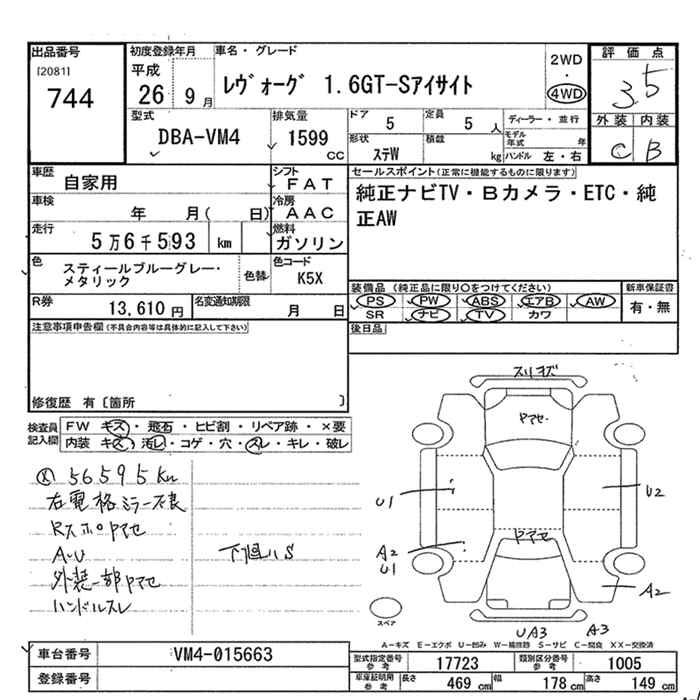 出品番号
[2081]
744
初度登録年月
平成
26 9月
車名・グレード
レヴォーグ 1.6GT-Sアイサイト
2WD
・
4WD
評価点
3.5
外装 内装
C B
型式
DBA-VM4
排気量
1599
cc
ドア
5
定員
5人
ディーラー・並行
形状
ステW
積載
kg
モデル年式 年
ハンドル 左・右
車歴
自家用
シフト
FAT
車検
年 月( 日)
冷房
AAC
走行
5万6千593 km
燃料
ガソリン
色
スティールブルーグレー・
メタリック
色替
色コード
K5X
R券
13,610円
名変通知期限
月 日
セールスポイント(正常に機能するものに限ります)
純正ナビTV・Bカメラ・ETC・純
正AW
装備品(純正品に限り○をつけてください)
PS PW ABS エアB AW
SR ナビ TV カワ
新車保証書
有・無
後日品
注意事項申告欄(不具合内容等は具体的に記入して下さい)
修復歴 有〔箇所 〕
検査員記入欄
FW キズ・飛石・ヒビ割・リペア跡・×要
内装 キズ・汚レ・コゲ・穴・スレ・キレ・破レ
56595km
右電格ミラー不良
RスポPアセ
A・U
外装一部Pアセ
ハンドルスレ
下廻りS
スリキズ
Pアセ
U1
U2
Pアセ
A2
U1
A2
UA3
A3
スペア
A-キズ E-エクボ U-凹み W-補修跡 S-サビ C-腐食 XX-交換済
車台番号
VM4-015663
登録番号
型式指定番号参考
17723
類別区分番号参考
1005
車庫証明用参考
長さ 469cm
幅 178cm
高さ 149cm